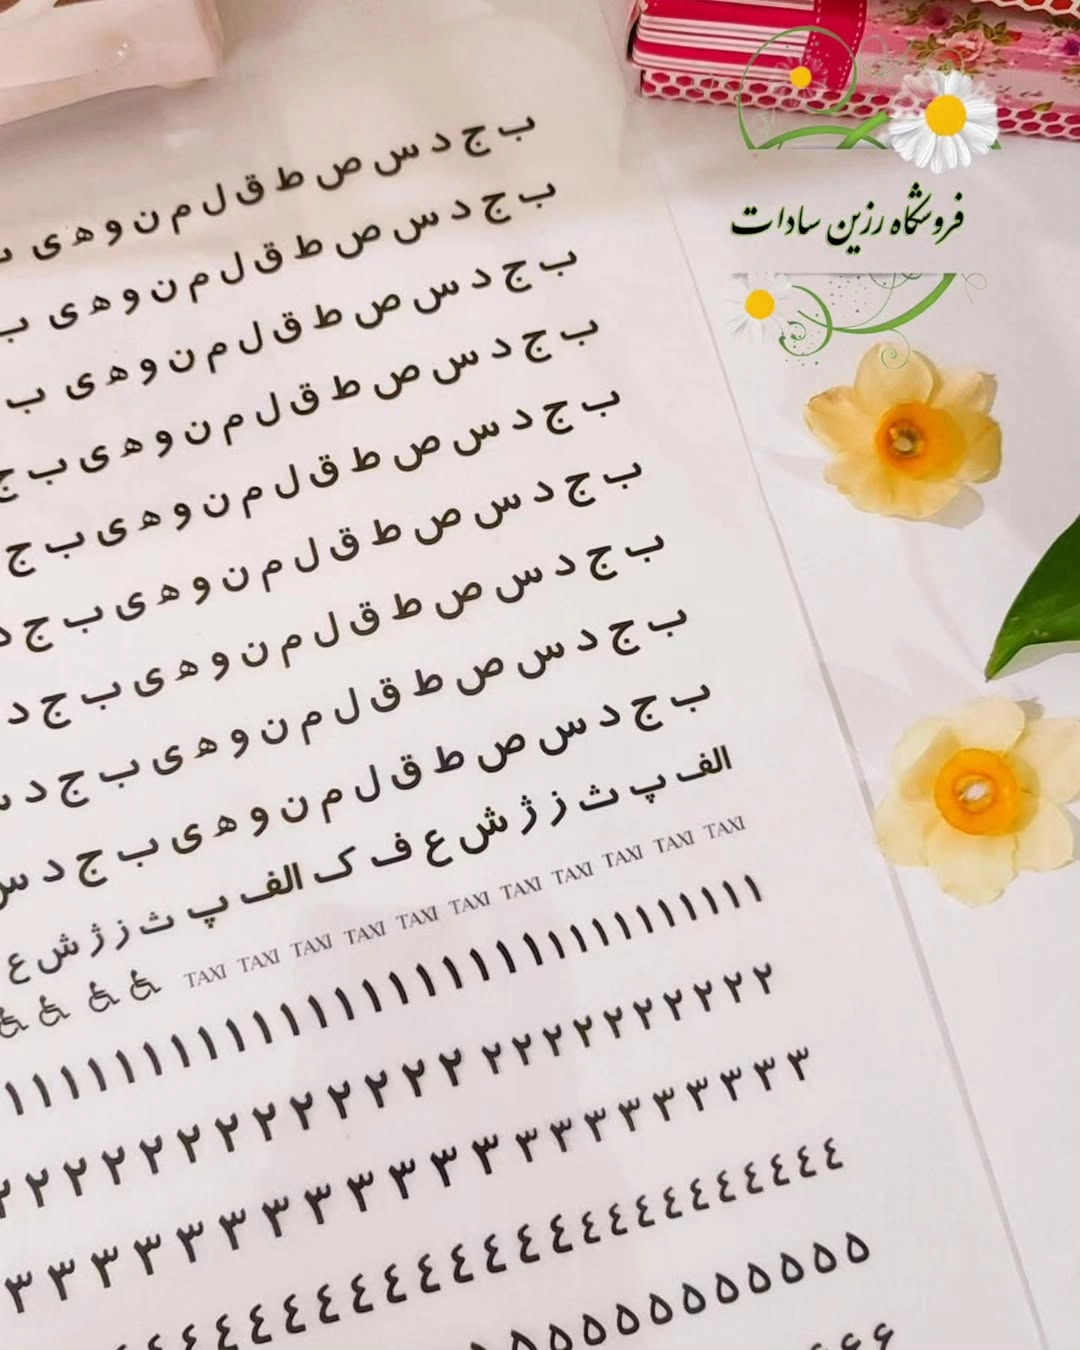 فروشگاه رزین سادات
ب ج د س ص ط ق ل م ن و ه ی
ب ج د س ص ط ق ل م ن و ه ی ب
ب ج د س ص ط ق ل م ن و ه ی ب
ب ج د س ص ط ق ل م ن و ه ی ب ج
ب ج د س ص ط ق ل م ن و ه ی ب ج
ب ج د س ص ط ق ل م ن و ه ی ب ج د
ب ج د س ص ط ق ل م ن و ه ی ب ج د
ب ج د س ص ط ق ل م ن و ه ی ب ج د
ب ج د س ص ط ق ل م ن و ه ی ب ج د س
الف پ ث ز ژ ش ع ف ک الف پ ث ز ژ ش ع
TAXI TAXI TAXI TAXI TAXI TAXI TAXI TAXI TAXI TAXI TAXI
۱۱۱۱۱۱۱۱۱۱۱۱۱۱۱۱۱۱۱۱۱۱۱۱۱۱۱۱۱
۲۲۲۲۲۲۲۲۲۲ ۲۲۲۲۲۲۲۲۲۲۲۲۲
۳۳۳۳۳۳۳۳۳۳۳۳۳۳۳۳۳۳۳۳۳
٤٤٤٤٤٤٤٤٤٤٤٤٤٤٤٤٤٤٤٤٤٤٤٤
۵۵۵۵۵۵۵۵۵۵۵۵
۶۶۶